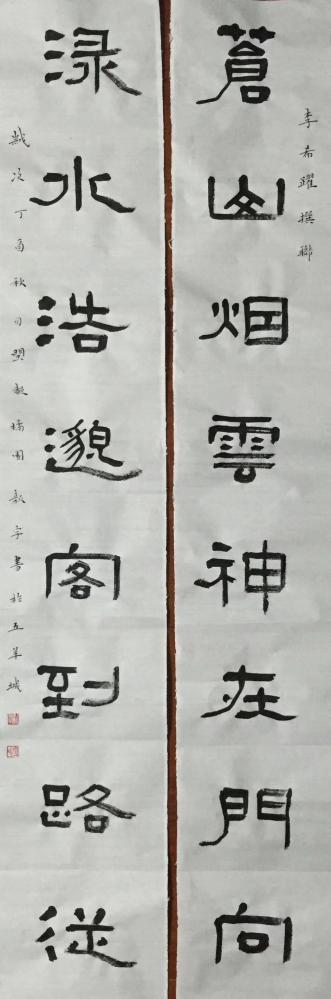 李希躍撰聯
蒼山烟雲神在門向
渌水浩邈客到路從
歲次丁酉秋月 書於五羊城